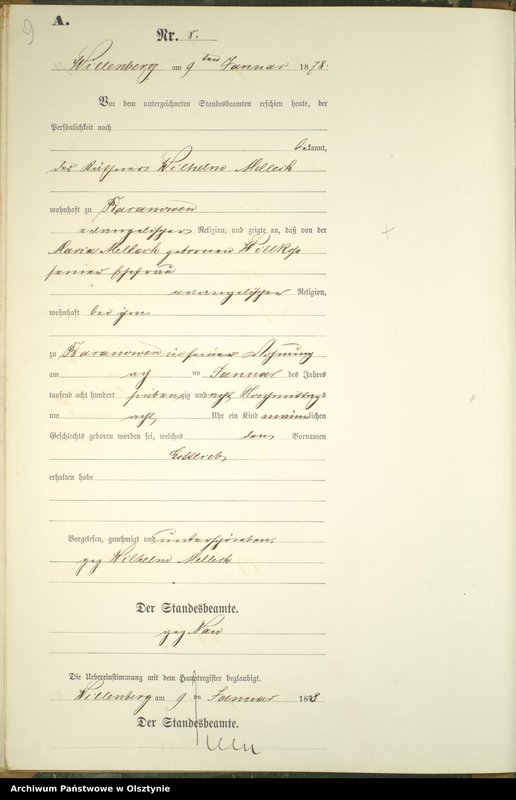 9
A.
Nr. 8.
Willenberg am 9ten Januar 1878.
Vor dem unterzeichneten Standesbeamten erschien heute, der
Persönlichkeit nach
bekannt,
der Käthner Wilhelm Melleck
wohnhaft zu Baranowen
evangelischer Religion, und zeigte an, daß von der
Maria Melleck geborenen Willkop
seiner Ehefrau
evangelischer Religion,
wohnhaft bei ihm
zu Baranowen in seiner Wohnung
am ten Januar des Jahres
tausend acht hundert siebenzig und acht Nachmittags
um acht Uhr ein Kind männlichen
Geschlechts geboren worden sei, welches den Vornamen
Gottlieb
erhalten habe
Vorgelesen, genehmigt und unterschrieben
gez Wilhelm Melleck
Der Standesbeamte.
gez
Die Uebereinstimmung mit dem Hauptregister beglaubigt.
Willenberg am 9 ten Januar 1878
Der Standesbeamte.
Archiwum Państwowe w Olsztynie